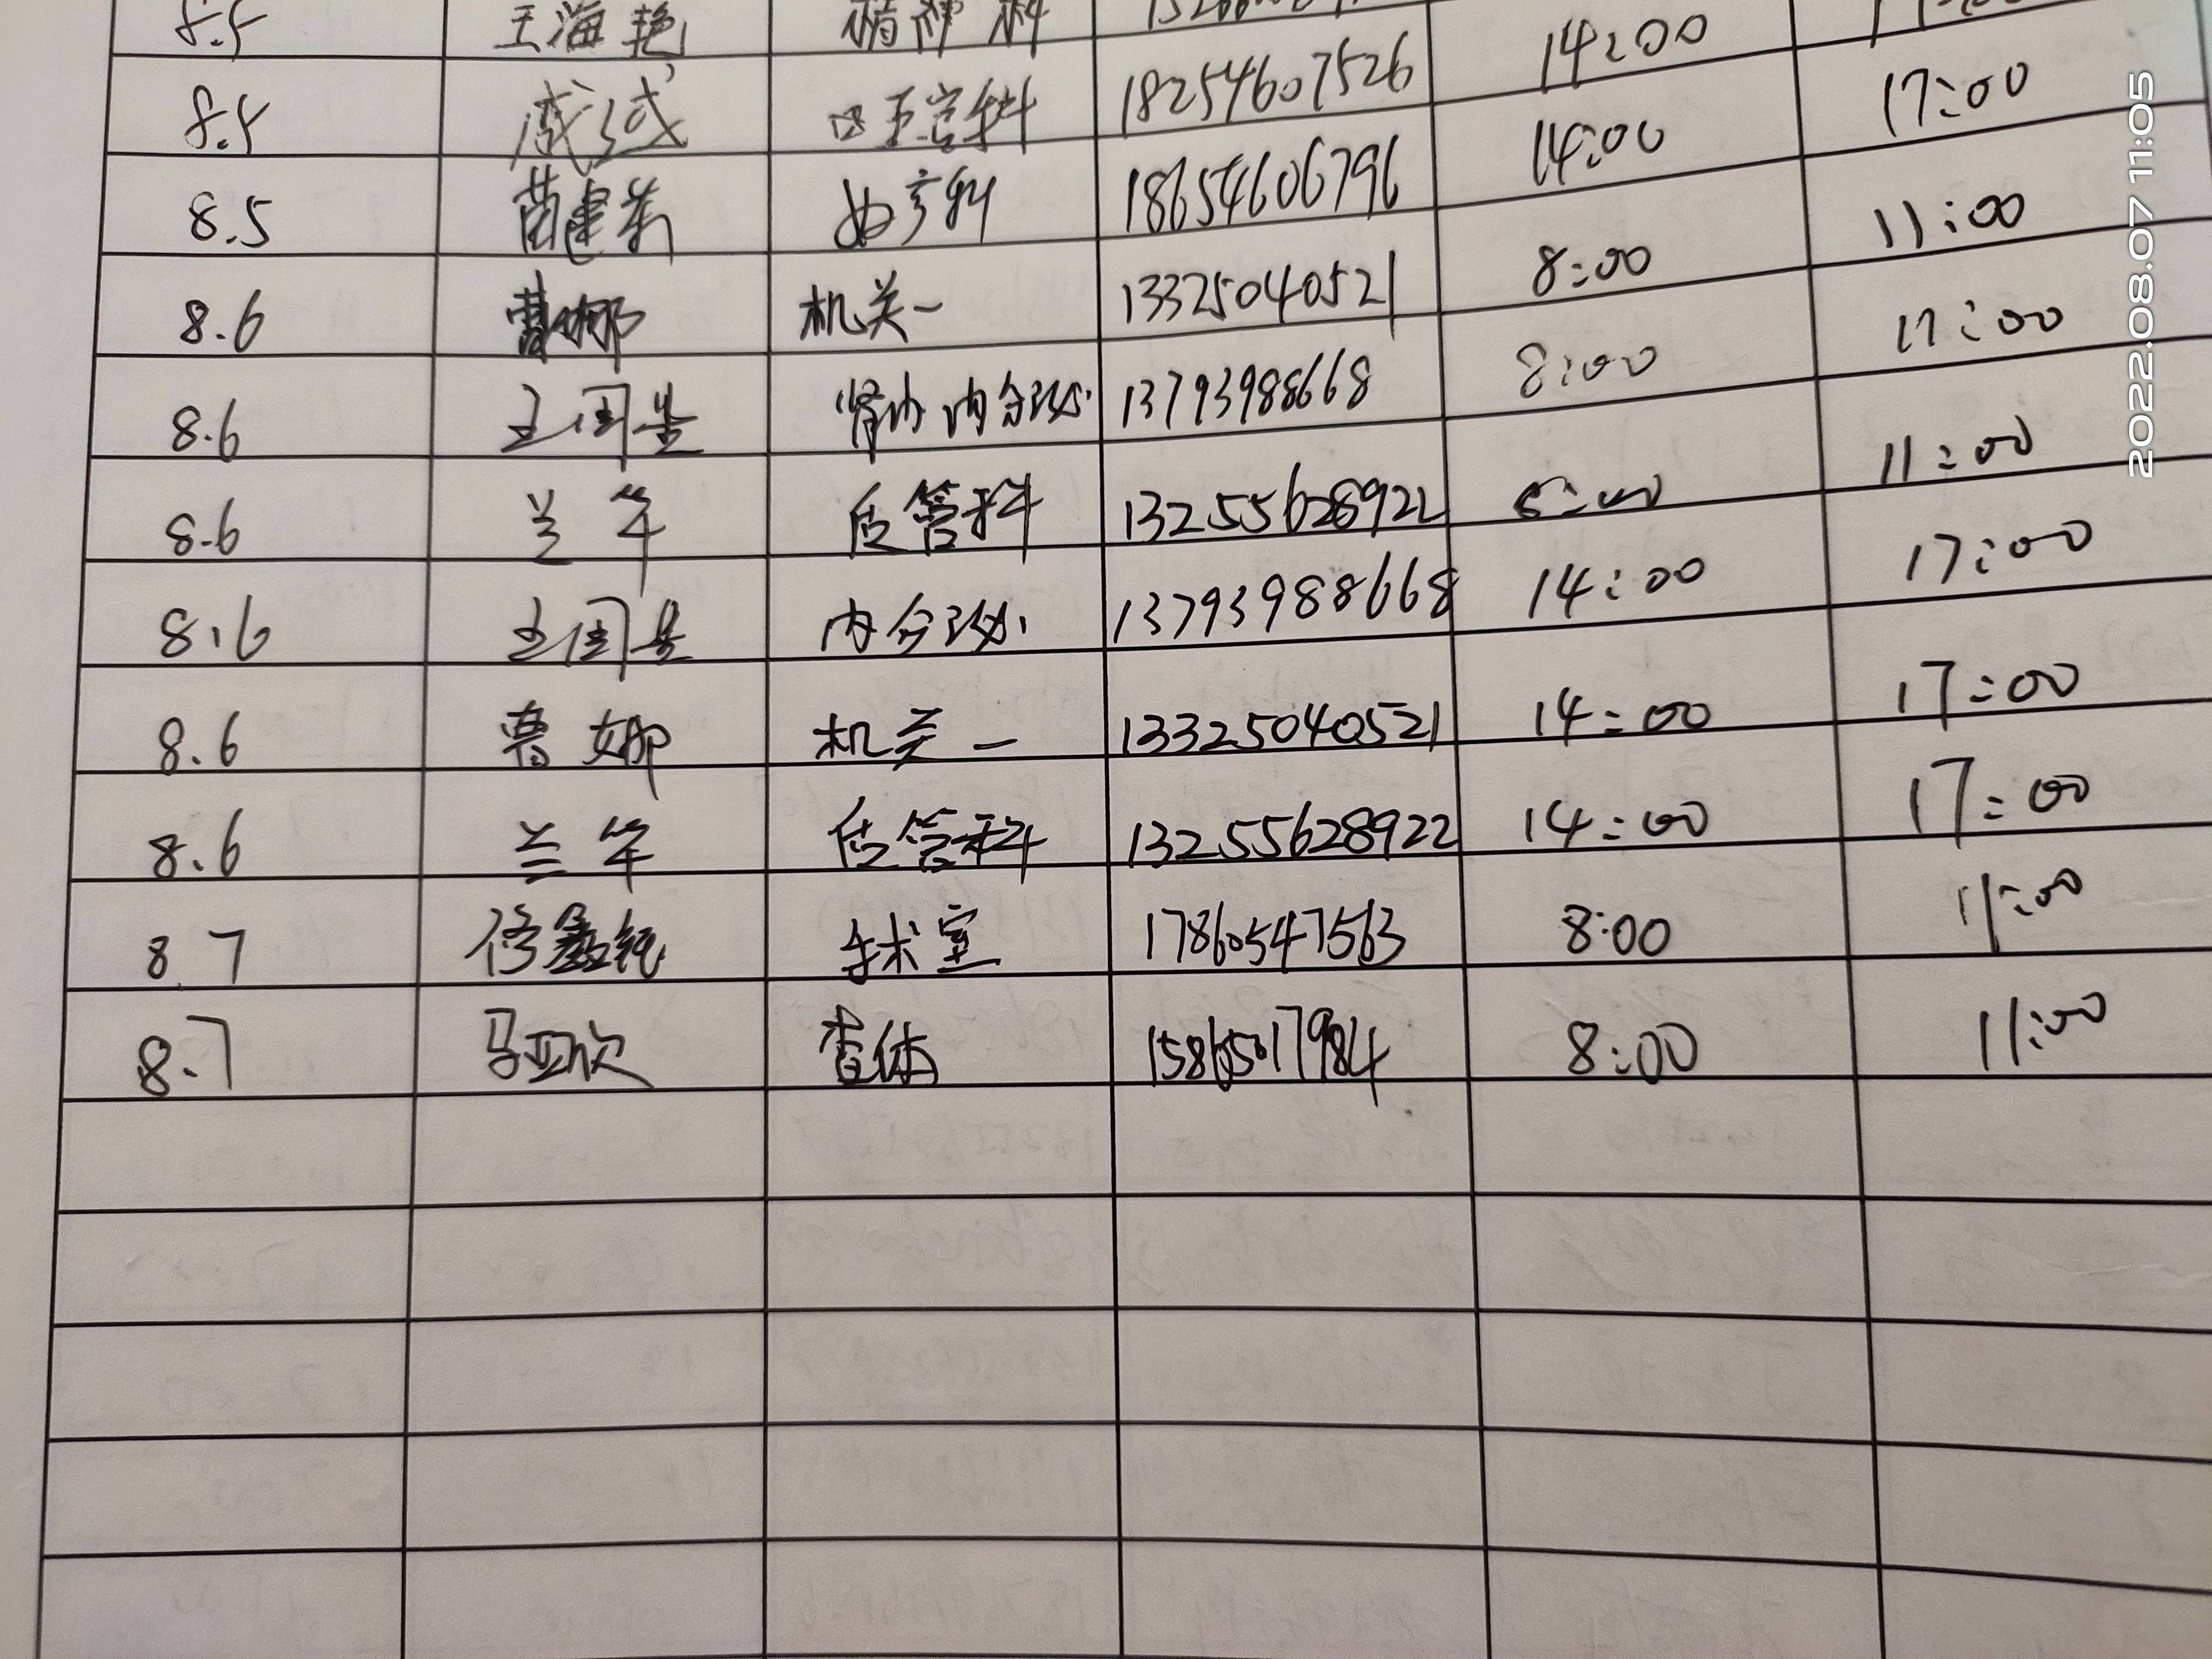 8.5 王海艳 精神科 14:00
8.5 18254607526 14:00 17:00
8.5 苗建 妇产科 18654606796 11:00
8.6 曹娜 机关一 13325040521 8:00 17:00
8.6 王国 肾内内分泌 13793988668 8:00 11:00
8.6 兰 质管科 13255628922 8:00 17:00
8.6 王国 内分泌 13793988668 14:00
8.6 曹娜 机关一 13325040521 14:00 17:00
8.6 兰 质管科 13255628922 14:00 17:00
8.7 手术室 17860547563 8:00 11:00
8.7 马亚欣 查体 15865017984 8:00 11:00
2022.08.07 11:05